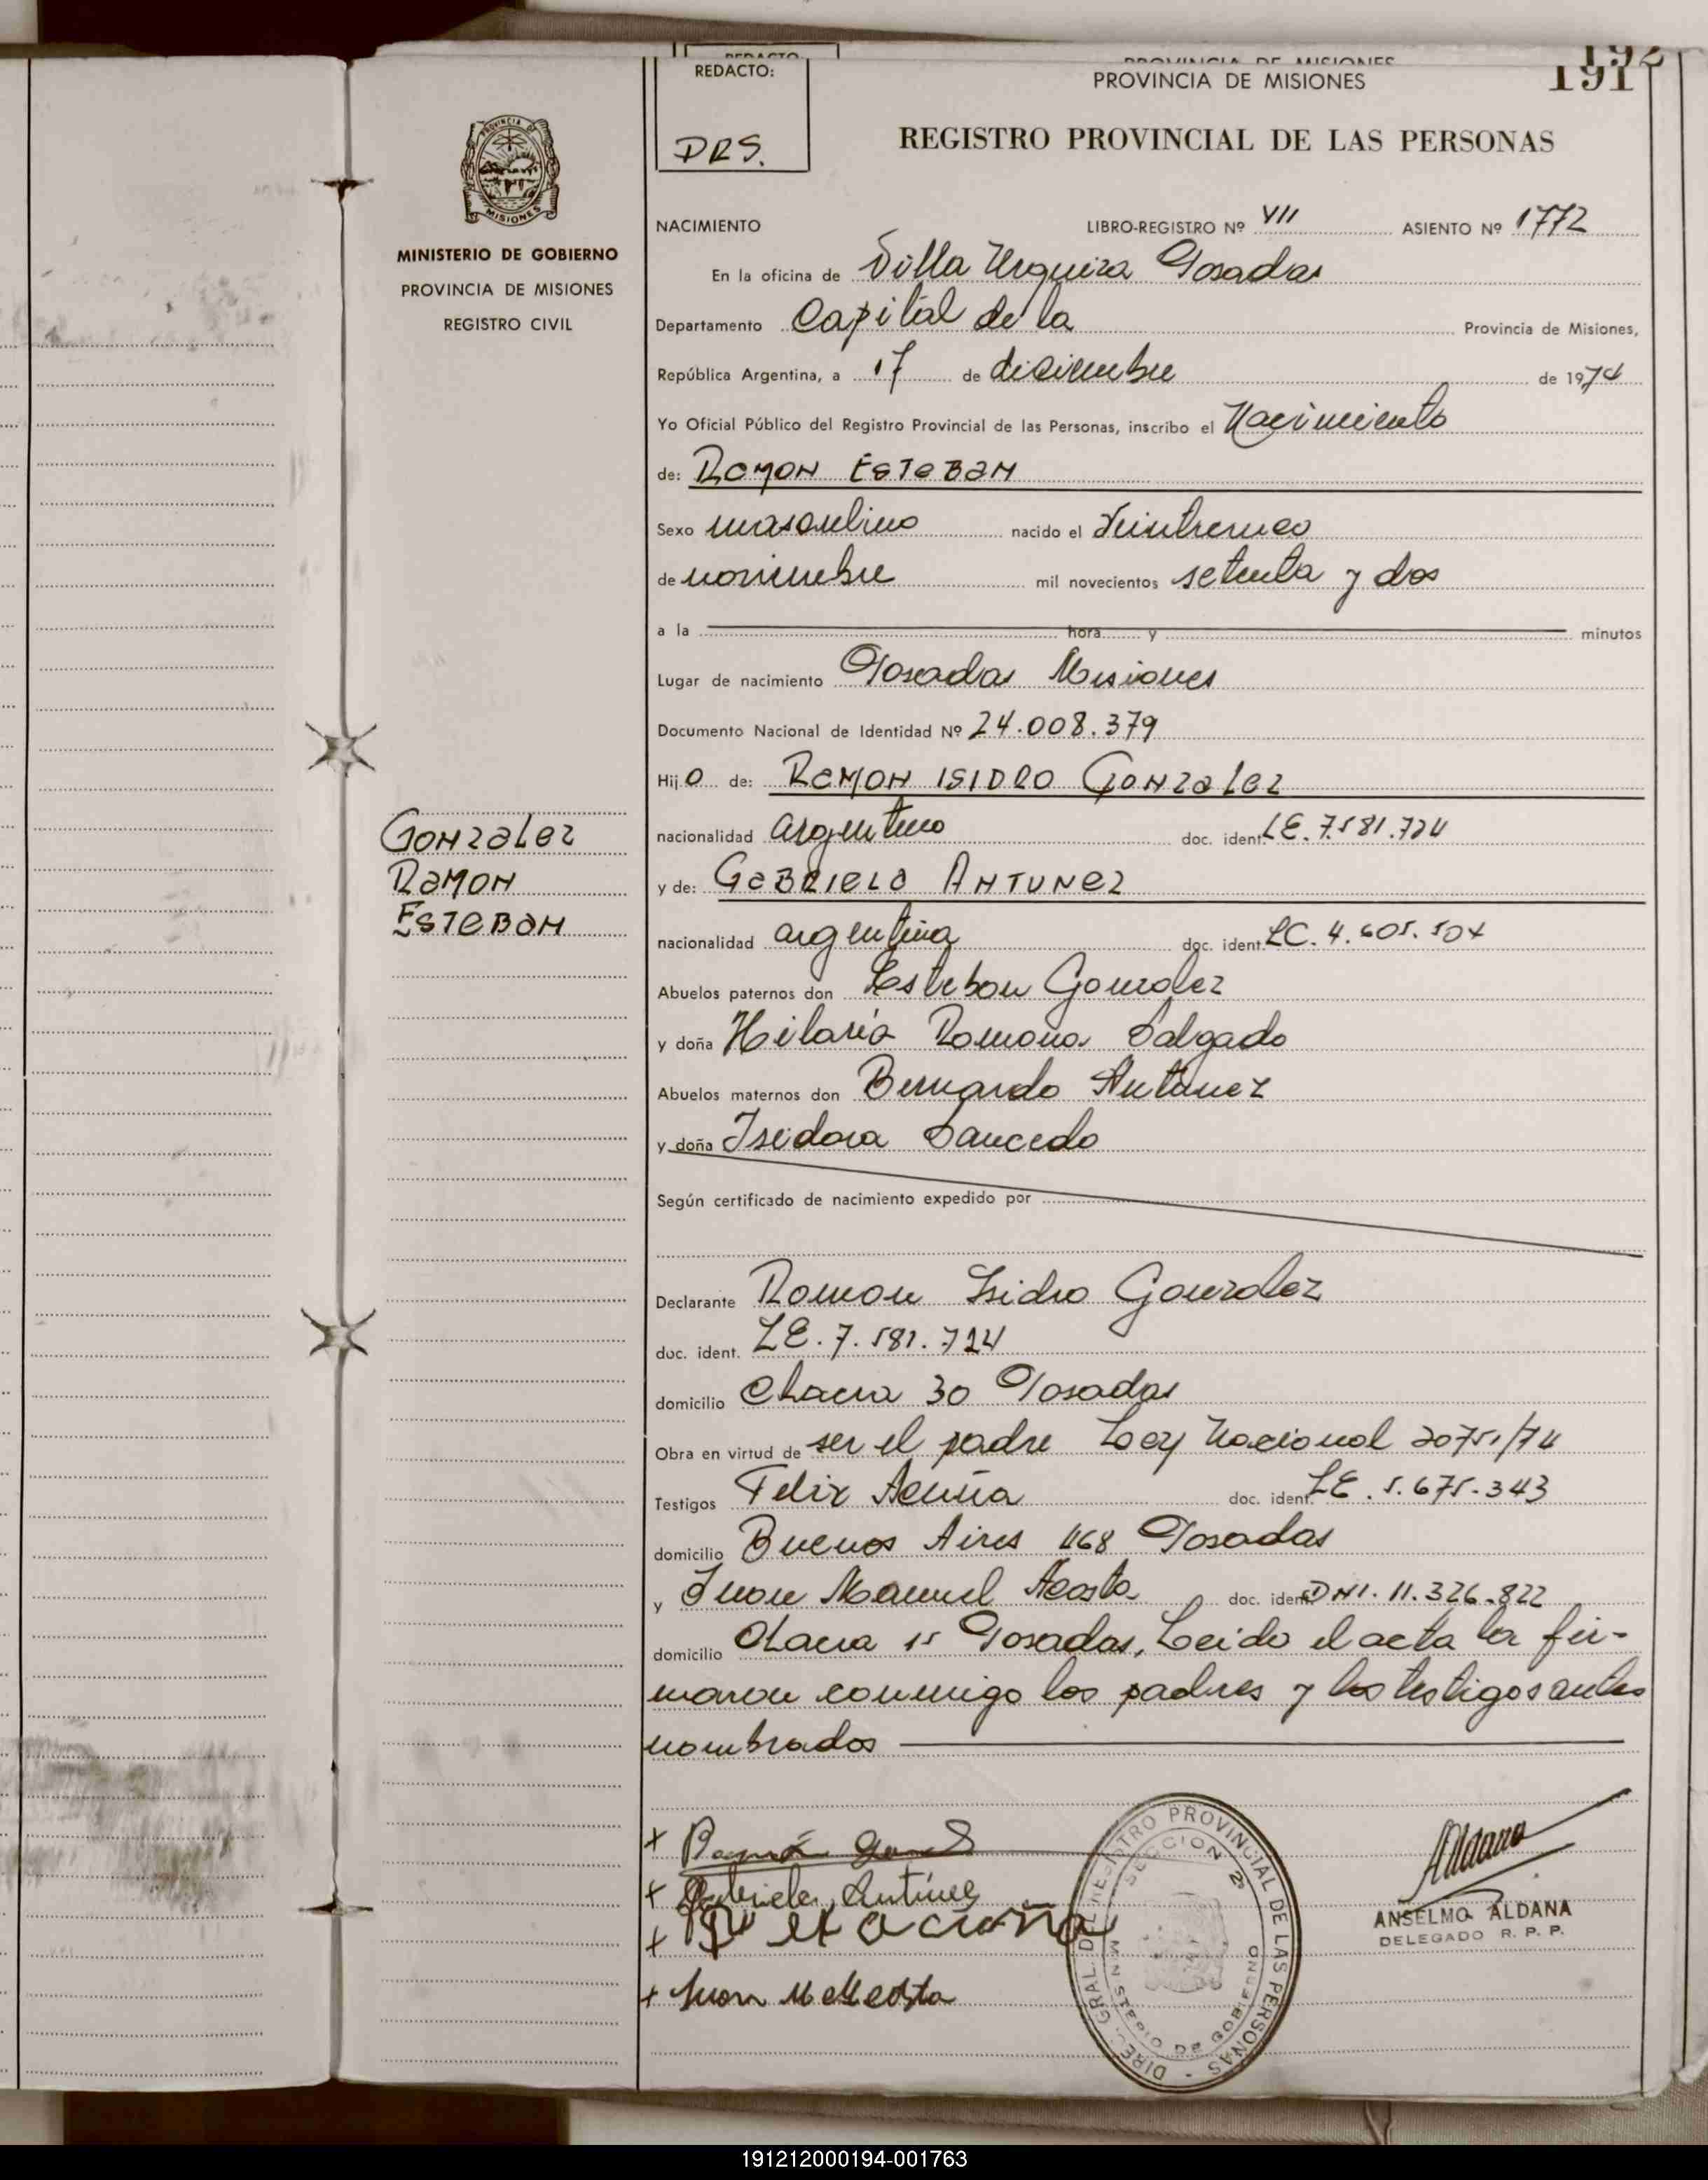 192
PROVINCIA DE MISIONES
191
REDACTO:
PROVINCIA DE MISIONES
DRS.
REGISTRO PROVINCIAL DE LAS PERSONAS
PROVINCIA DE
MISIONES
MINISTERIO DE GOBIERNO
PROVINCIA DE MISIONES
REGISTRO CIVIL
GONZALEZ
RAMON
ESTEBAN
NACIMIENTO LIBRO-REGISTRO Nº VII ASIENTO Nº 1772
En la oficina de Villa Urquiza Posadas
Departamento Capital de la Provincia de Misiones,
República Argentina, a 17 de diciembre de 1974
Yo Oficial Público del Registro Provincial de las Personas, inscribo el Nacimiento
de: RAMON ESTEBAN
Sexo masculino nacido el
de noviembre mil novecientos setenta y dos
a la hora y minutos
Lugar de nacimiento Posadas Misiones
Documento Nacional de Identidad Nº 24.008.379
Hijo de: RAMON ISIDRO GONZALEZ
nacionalidad argentino doc. ident. LE. 7.581.724
y de: GABRIELA ANTUNEZ
nacionalidad argentina doc. ident. LC. 4.605.504
Abuelos paternos don Esteban Gonzalez
y doña Hilaria Ramona Salgado
Abuelos maternos don Bernardo Antunez
y doña Isidora Saucedo
Según certificado de nacimiento expedido por
Declarante Ramon Isidro Gonzalez
doc. ident. LE. 7.581.724
domicilio Chacra 30 Posadas
Obra en virtud de ser el padre Ley Nacional 20751/74
Testigos Felix Acuña doc. ident. LE. 5.675.343
domicilio Buenos Aires 1168 Posadas
y Juan Manuel Acosta doc. ident. DNI. 11.326.822
domicilio Chacra 15 Posadas, Leido el acta la fir-
maron conmigo los padres y los testigos antes
nombrados
+ Ramón
+ Gabriela Antúnez
+ acuña
+ Juan M Acosta
DIREC. GRAL. DEL REGISTRO PROVINCIAL DE LAS PERSONAS
SECCION 2º
MINISTERIO DE GOBIERNO
Aldana
ANSELMO ALDANA
DELEGADO R. P. P.
191212000194-001763